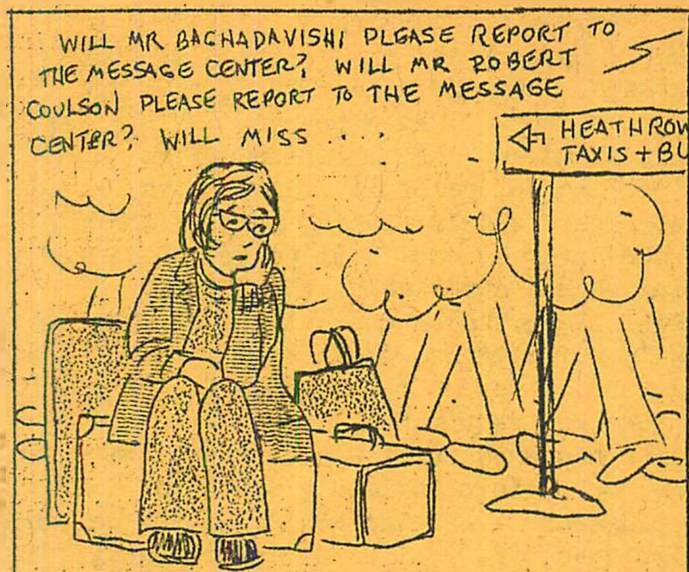 WILL MR BACHADAVISHI PLEASE REPORT TO
THE MESSAGE CENTER? WILL MR ROBERT
COULSON PLEASE REPORT TO THE MESSAGE
CENTER? WILL MISS ....
HEATHROW
TAXIS + BU